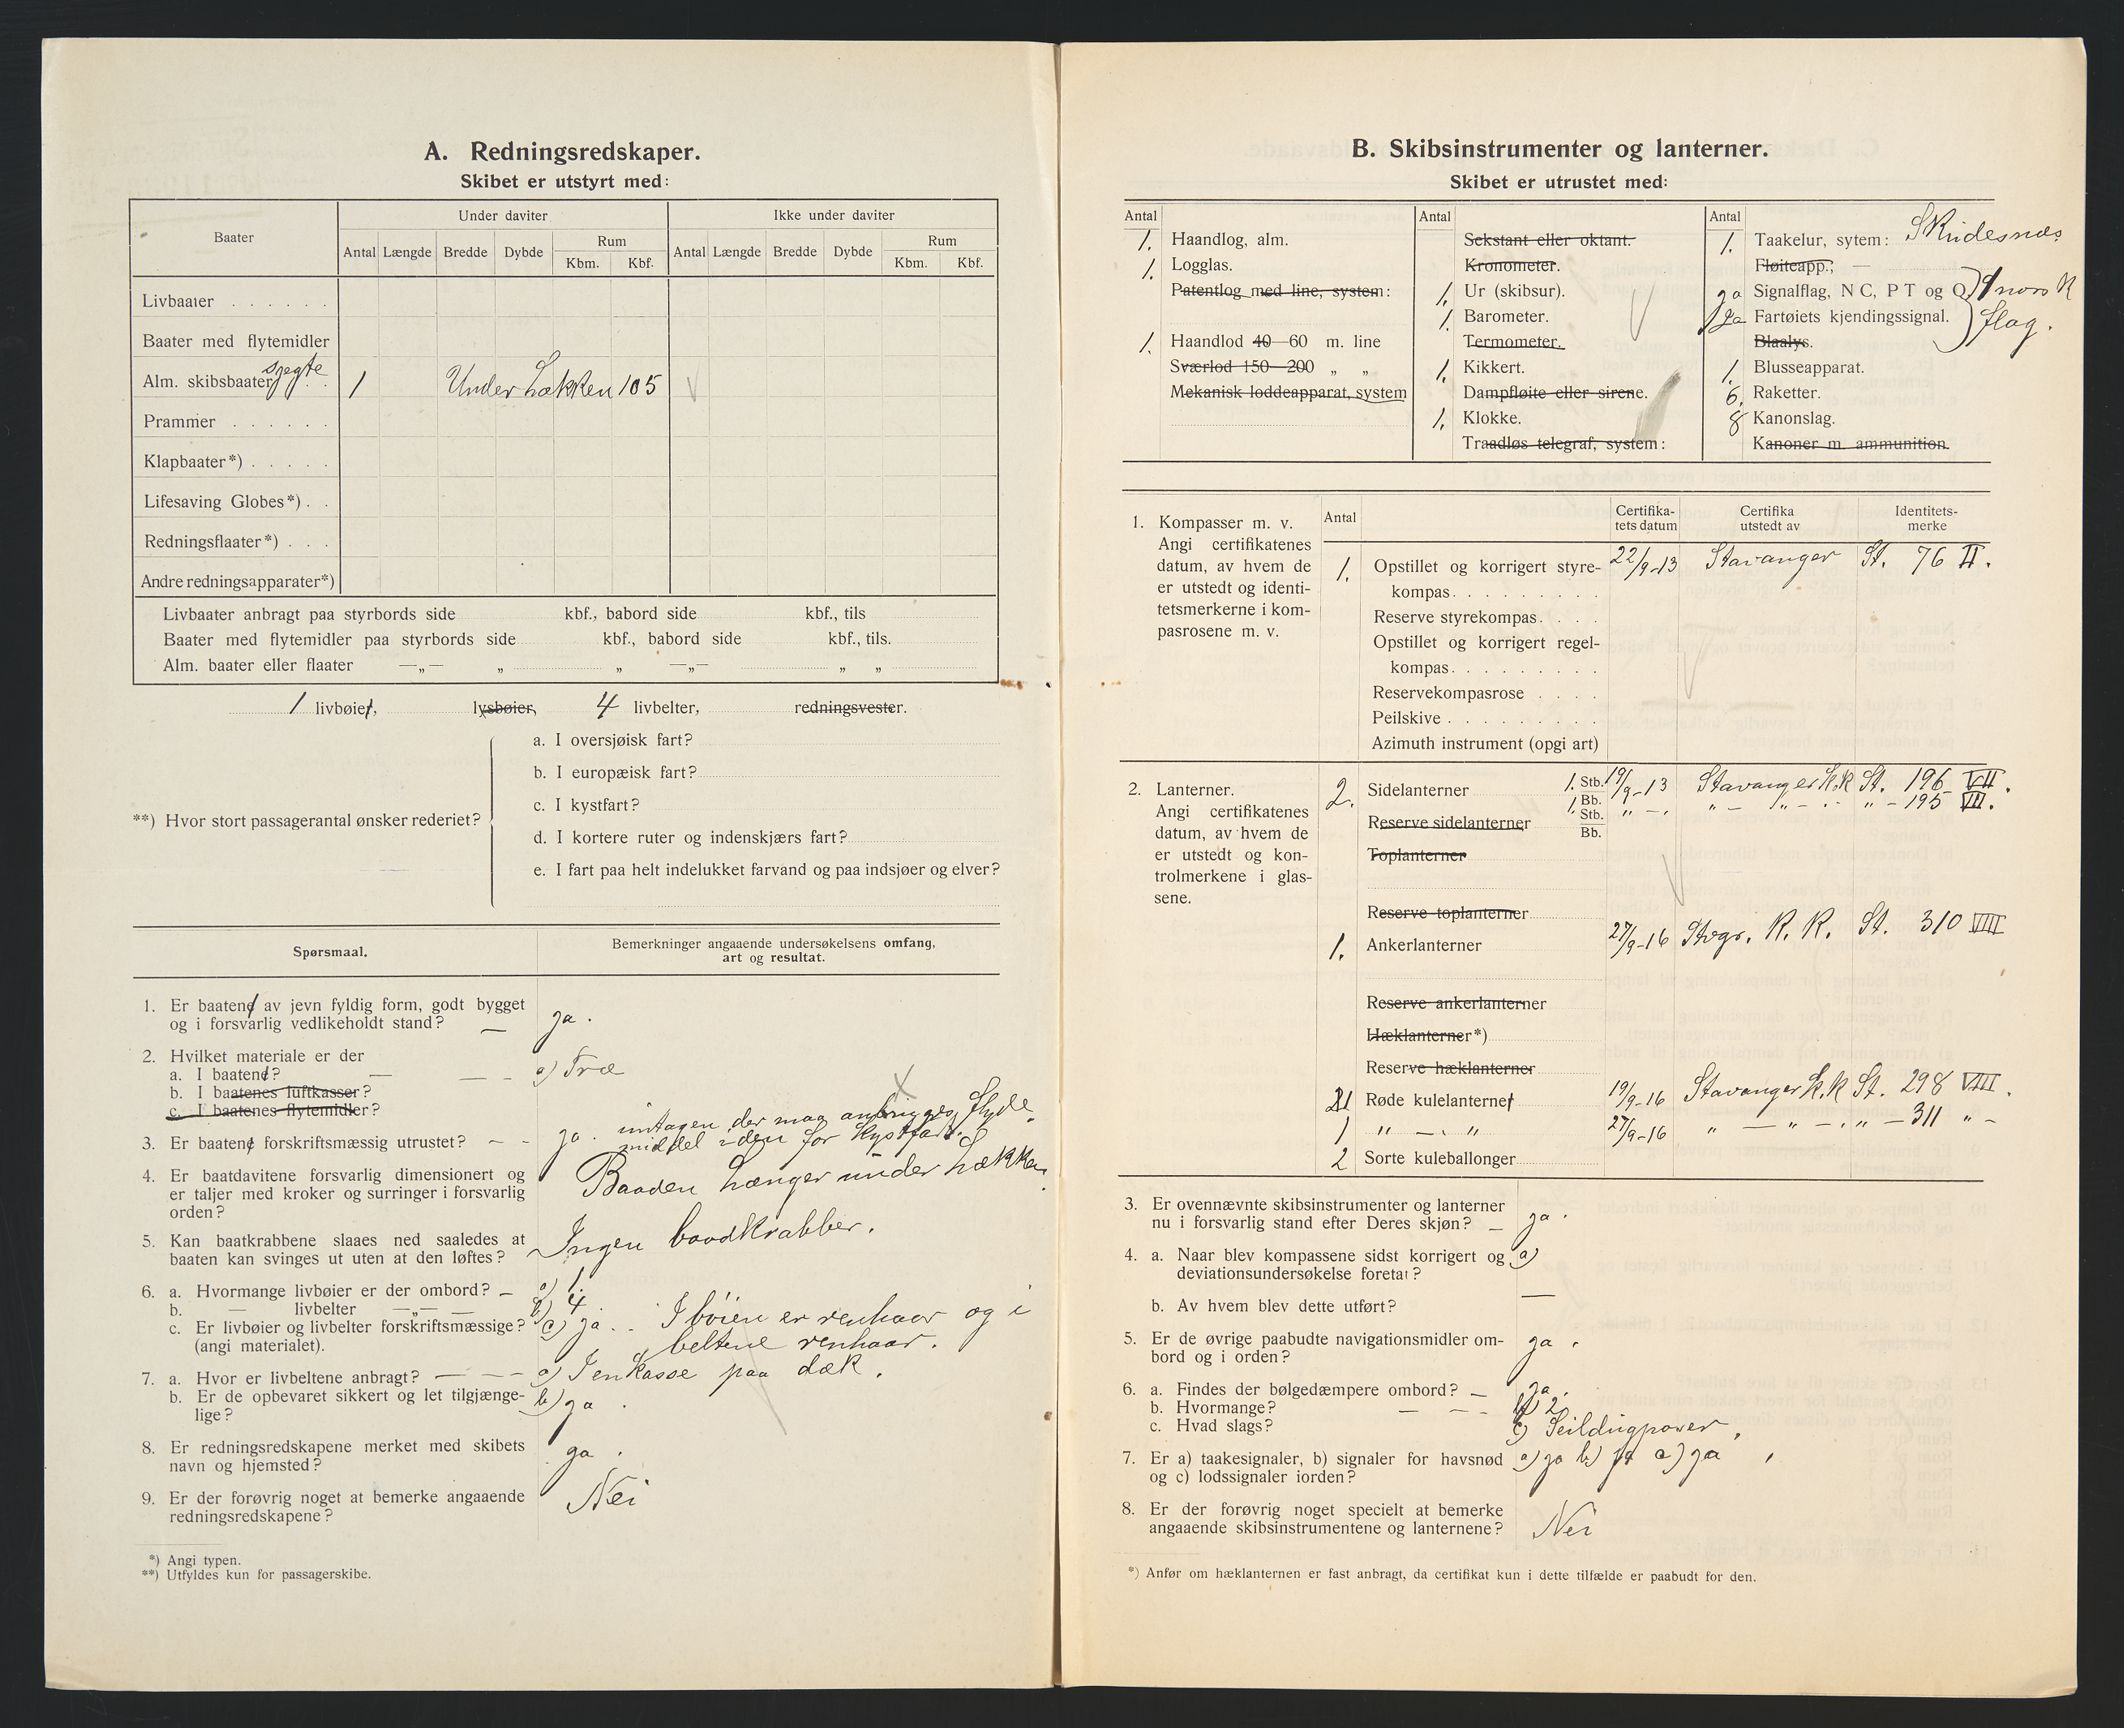 A. Redningsredskaper.
Skibet er utstyrt med:
Baater
Under daviter
Ikke under daviter
Antal Længde Bredde Dybde Rum Kbm. Kbf.
Antal Længde Bredde Dybde Rum Kbm. Kbf.
Livbaater . . . . . .
Baater med flytemidler
Alm. skibsbaater sjegte 1 Under Hækken 105
Prammer . . . . . .
Klapbaater*) . . . . .
Lifesaving Globes*) . .
Redningsflaater*) . . .
Andre redningsapparater*)
Livbaater anbragt paa styrbords side kbf., babord side kbf., tils
Baater med flytemidler paa styrbords side kbf., babord side kbf., tils.
Alm. baater eller flaater —„— „ „ —„— „ „
1 livbøier, lysbøier, 4 livbelter, redningsvester.
**) Hvor stort passagerantal ønsker rederiet?
a. I oversjøisk fart?
b. I europæisk fart?
c. I kystfart?
d. I kortere ruter og indenskjærs fart?
e. I fart paa helt indelukket farvand og paa indsjøer og elver?
Spørsmaal.
Bemerkninger angaaende undersøkelsens omfang,
art og resultat.
1. Er baatene av jevn fyldig form, godt bygget
og i forsvarlig vedlikeholdt stand? — ja.
2. Hvilket materiale er der
a. I baatene? — — - a) Træ
b. I baatenes luftkasser?
c. I baatenes flytemidler?
3. Er baatene forskriftsmæssig utrustet? - - ja. inntagen der maa anbrigges flyde
middel i den for Kystfart.
4. Er baatdavitene forsvarlig dimensionert og
er taljer med kroker og surringer i forsvarlig
orden?
Baaden hænger under hækken.
5. Kan baatkrabbene slaaes ned saaledes at
baaten kan svinges ut uten at den løftes?
Ingen baadkrabber.
6. a. Hvormange livbøier er der ombord? — a) 1.
b. — livbelter —„— — b) 4
c. Er livbøier og livbelter forskriftsmæssige? c) ja. . I bøien er renhaar og i
(angi materialet). beltene renhaar.
7. a. Hvor er livbeltene anbragt? — - — - a) I en kasse paa dæk.
b. Er de opbevaret sikkert og let tilgjænge-
lige?
b) ja.
8. Er redningsredskapene merket med skibets
navn og hjemsted?
ja.
9. Er der forøvrig noget at bemerke angaaende
redningsredskapene?
Nei
*) Angi typen.
**) Utfyldes kun for passagerskibe.
B. Skibsinstrumenter og lanterner.
Skibet er utrustet med:
Antal
1. Haandlog, alm.
1. Logglas.
Patentlog med line, system:
1. Haandlod 40—60 m. line
Sværlod 150—200 „ „
Mekanisk loddeapparat, system
Antal
Sekstant eller oktant.
Kronometer.
1. Ur (skibsur).
1. Barometer.
Termometer.
1. Kikkert.
Dampfløite eller sirene.
1. Klokke.
Traadløs telegraf, system:
Antal
1. Taakelur, sytem: Skudesnæs
Fløiteapp.; —
ja Signalflag, N C, P T og Q
1 ja Fartøiets kjendingssignal.
1 norsk
flag.
Blaalys.
1. Blusseapparat.
6. Raketter.
8 Kanonslag.
Kanoner m. ammunition.
1. Kompasser m. v.
Angi certifikatenes
datum, av hvem de
er utstedt og identi-
tetsmerkerne i kom-
pasrosene m. v.
Antal
Certifika-
tets datum
Certifika
utstedt av
Identitets-
merke
1. Opstillet og korrigert styre-
kompas . . . . . . . . .
22/9-13 Stavanger St. 76 II.
Reserve styrekompas . . . .
Opstillet og korrigert regel-
kompas . . . . . . . . .
Reservekompasrose . . . .
Peilskive . . . . . . . . .
Azimuth instrument (opgi art)
2. Lanterner.
Angi certifikatenes
datum, av hvem de
er utstedt og kon-
trolmerkene i glas-
sene.
2. Sidelanterner 1. Stb. 19/9-13 Stavanger k.k St. 196 VII.
1. Bb. „ — „ „ — „ — „ — 195 VII.
Reserve sidelanterner Stb.
Bb.
Toplanterner
Reserve toplanterner
1. Ankerlanterner 27/9-16 Stvgr. K. K. St. 310 VIII
Reserve ankerlanterner
Hæklanterner*)
Reserve hæklanterner
1 Røde kulelanterner 19/9-16 Stavanger k.k St. 298 VIII.
1 „ — „ 27/9-16 „ — „ — „ — 311 „ -
2 Sorte kuleballonger
3. Er ovennævnte skibsinstrumenter og lanterner
nu i forsvarlig stand efter Deres skjøn? — ja.
4. a. Naar blev kompassene sidst korrigert og a)
deviationsundersøkelse foretat?
b. Av hvem blev dette utført? —
5. Er de øvrige paabudte navigationsmidler om-
bord og i orden?
ja.
6. a. Findes der bølgedæmpere ombord? — ja.
b. Hvormange? — — - b) 2
c. Hvad slags? c) Seildugposer.
7. Er a) taakesignaler, b) signaler for havsnød a) ja b) ja c) ja.
og c) lodssignaler iorden?
8. Er der forøvrig noget specielt at bemerke
angaaende skibsinstrumentene og lanternene?
Nei
*) Anfør om hæklanternen er fast anbragt, da certifikat kun i dette tilfælde er paabudt for den.